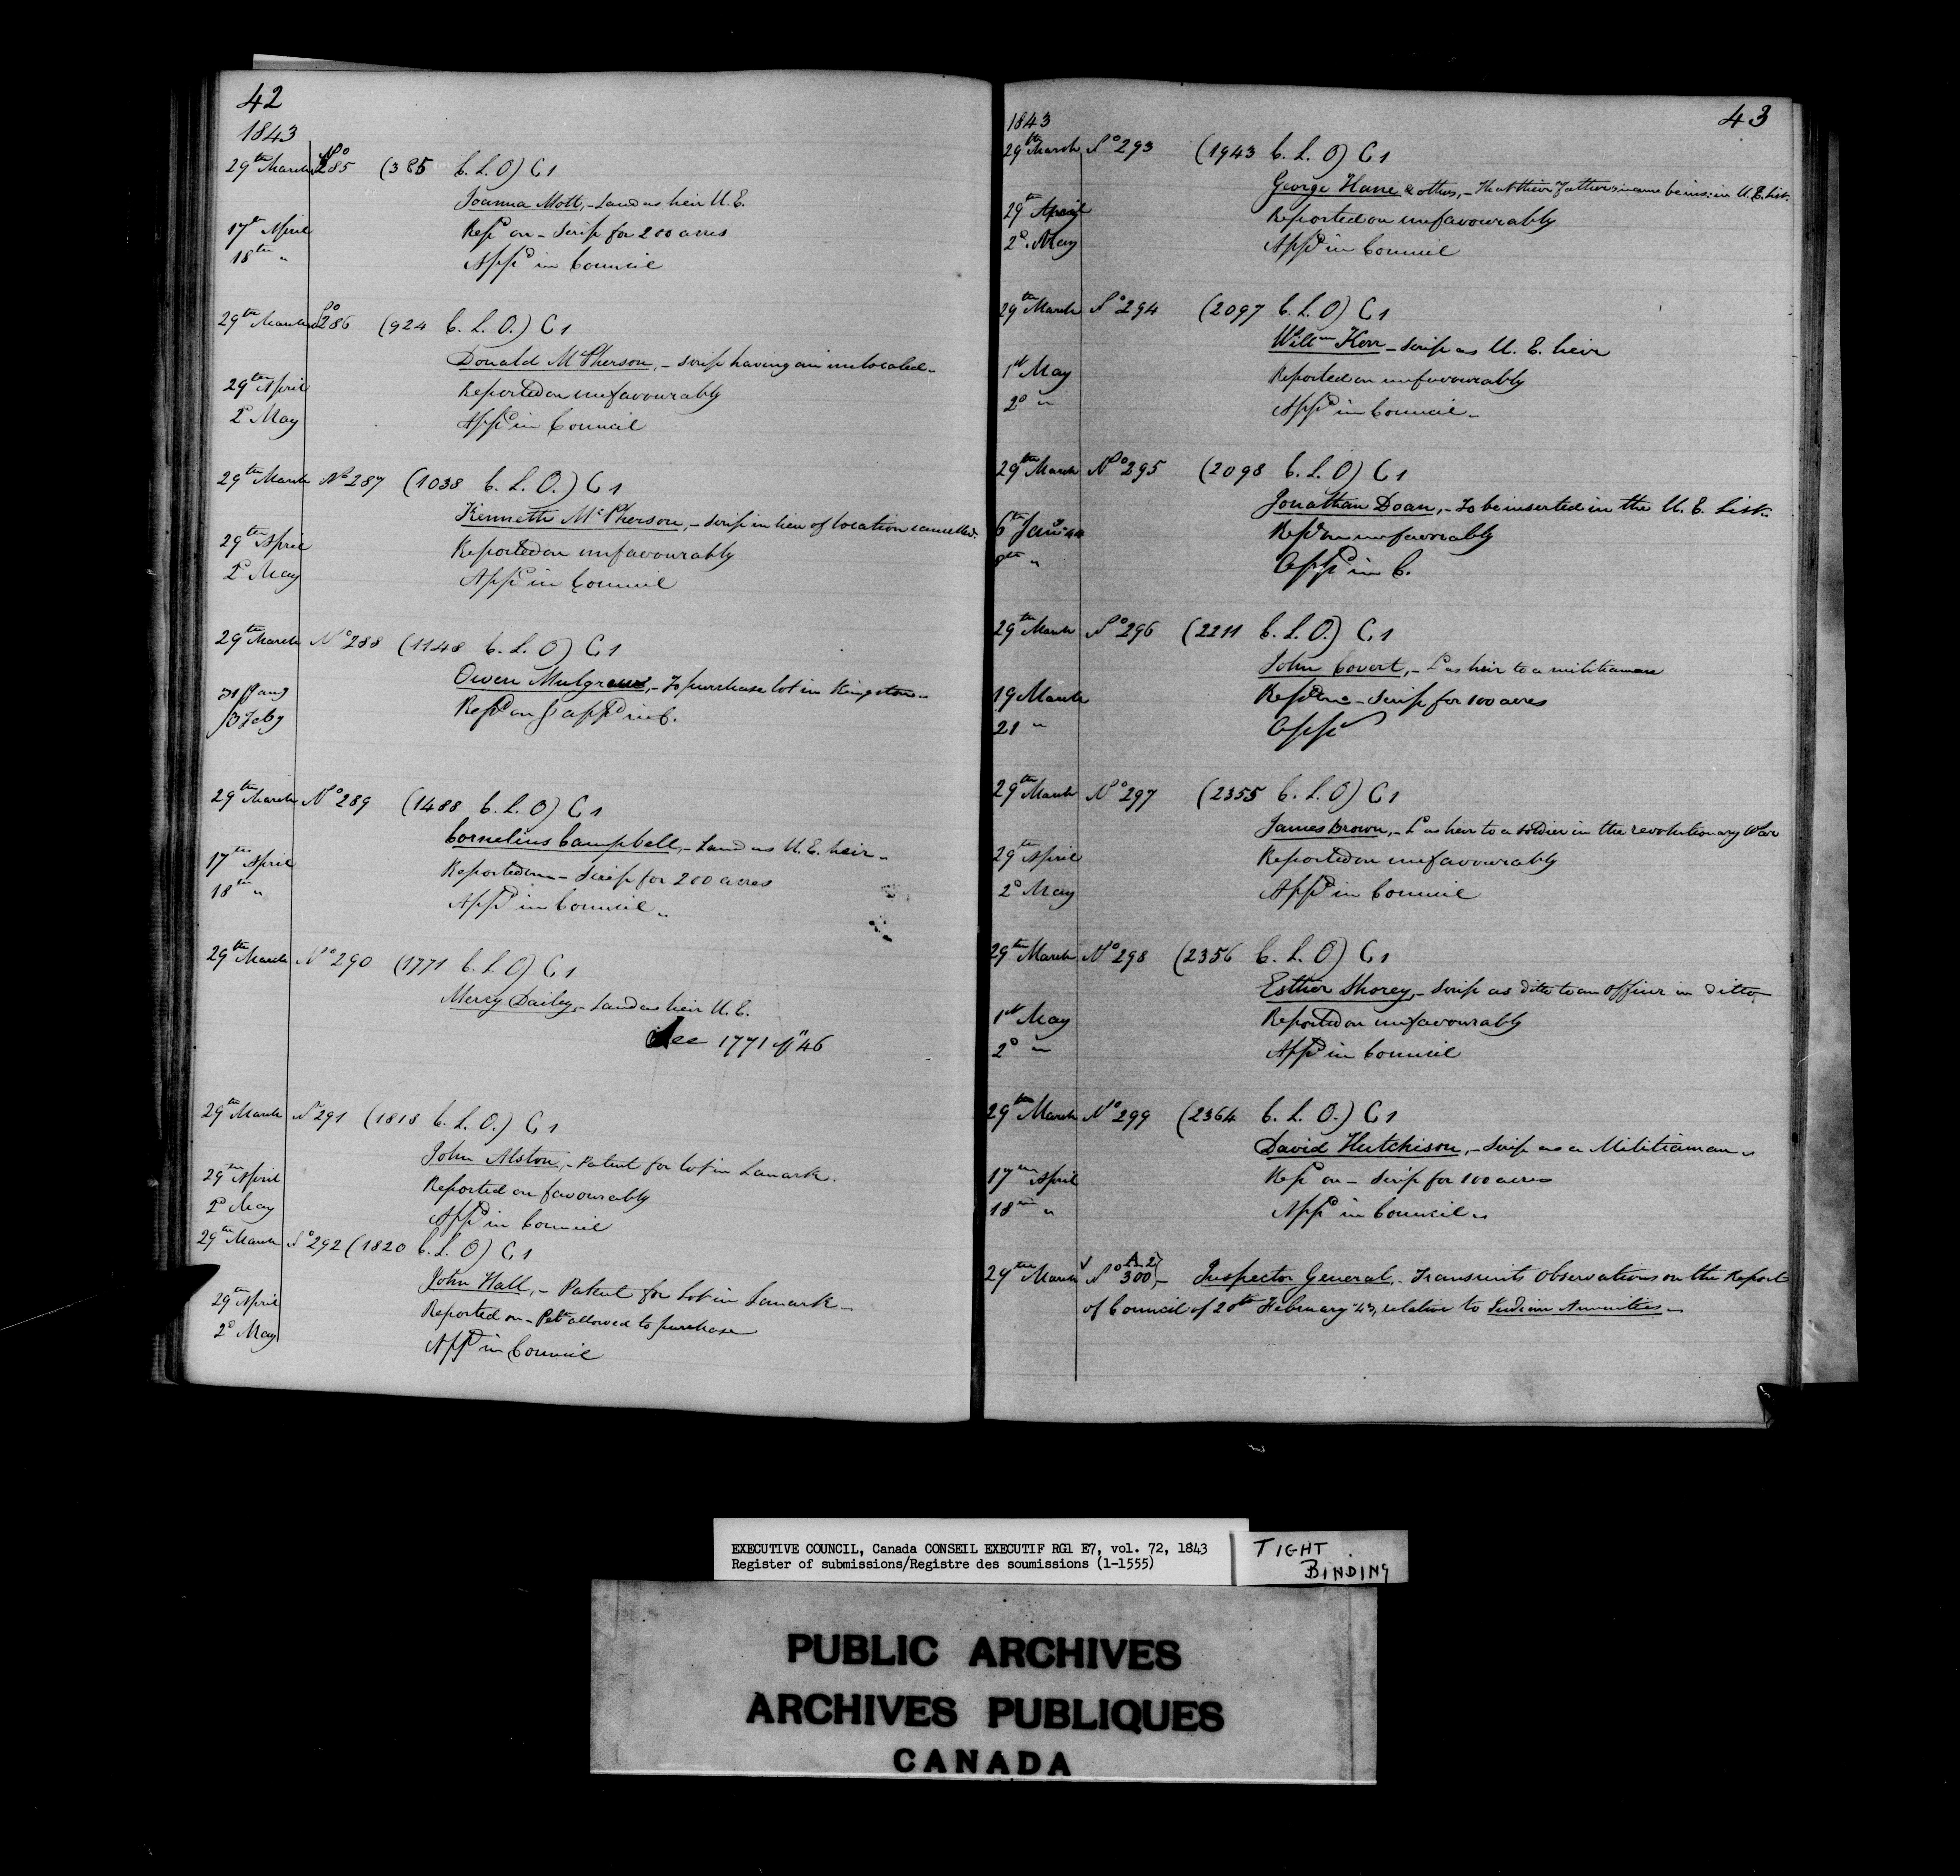 42
1843
29th March No 285 (385 C. L. O) C 1
Joanna Mott, - Land as heir U. E.
17th April Repd on - Scrip for 200 acres
18th " Appd in Council
29th March No 286 (924 C. L. O.) C 1
Donald McPherson, - Scrip having an unlocated -
29th April Reported on unfavourably
2d May Appd in Council
29th March No 287 (1038 C. L. O.) C 1
Kenneth McPherson, - Scrip in lieu of location cancelled.
29th April Reported on unfavourably
2d May Appd in Council
29th March No 288 (1148 C. L. O) C 1
Owen Mulgrew, - To purchase lot in Kingston -
31 Jany Repd on & appd in C.
13 Feby
29th March No 289 (1488 C. L. O) C 1
Cornelius Campbell, - Land as U. E. heir -
17th April Reported on - Scrip for 200 acres
18th " Appd in Council "
29th March No 290 (1771 C. L. O) C 1
Mercy Dailey, - Land as heir U. E.
See 1771 of "46
29th March No 291 (1818 C. L. O.) C 1
John Alston, - Patent for lot in Lanark.
29th April Reported on favourably
2d May Appd in Council
29th March No 292 (1820 C. L. O) C 1
John Hall, - Patent for Lot in Lanark -
29th April Reported on - Petr allowed to purchase
2d May Appd in Council
43
1843
29th March No 293 (1943 C. L. O) C 1
George Hane & others, - That their Father's name be ins: in U. E. List.
29th April Reported on unfavourably
2d. May Appd in Council
29th March No 294 (2097 C. L. O) C 1
Willm Kerr - Scrip as U. E. heir
1st May Reported on unfavourably
2d " Appd in Council "
29th March No 295 (2098 C. L. O) C 1
Jonathan Doan, - To be inserted in the U. E. List.
6th Jany 44 Repd on unfavorably
8th " Appd in C.
29th March No 296 (2211 C. L. O.) C 1
John Covert, - L as heir to a militiaman
19 March Repd on - Scrip for 100 acres
21 " Appd
29th March No 297 (2355 C. L. O) C 1
James Brown, - L as heir to a soldier in the revolutionary War
29th April Reported on unfavourably
2d May Appd in Council
29th March No 298 (2356 C. L. O) C 1
Esther Shorey, - Scrip as ditto to an Officer in ditto,
1st May Reported on unfavourably
2d " Appd in Council
29th March No 299 (2364 C. L. O.) C 1
David Hutchison, - Scrip as a Militiaman "
17th April Repd on - Scrip for 100 acres
18th " Appd in Council "
A. 2
29th March No 300 } - Inspector General, - Transmits Observations on the Report
of Council of 20th February '43, relative to Indian Annuities -
EXECUTIVE COUNCIL, Canada CONSEIL EXECUTIF RG1 E7, vol. 72, 1843
Register of submissions/Registre des soumissions (1-1555)
TIGHT
BINDING
PUBLIC ARCHIVES
ARCHIVES PUBLIQUES
CANADA